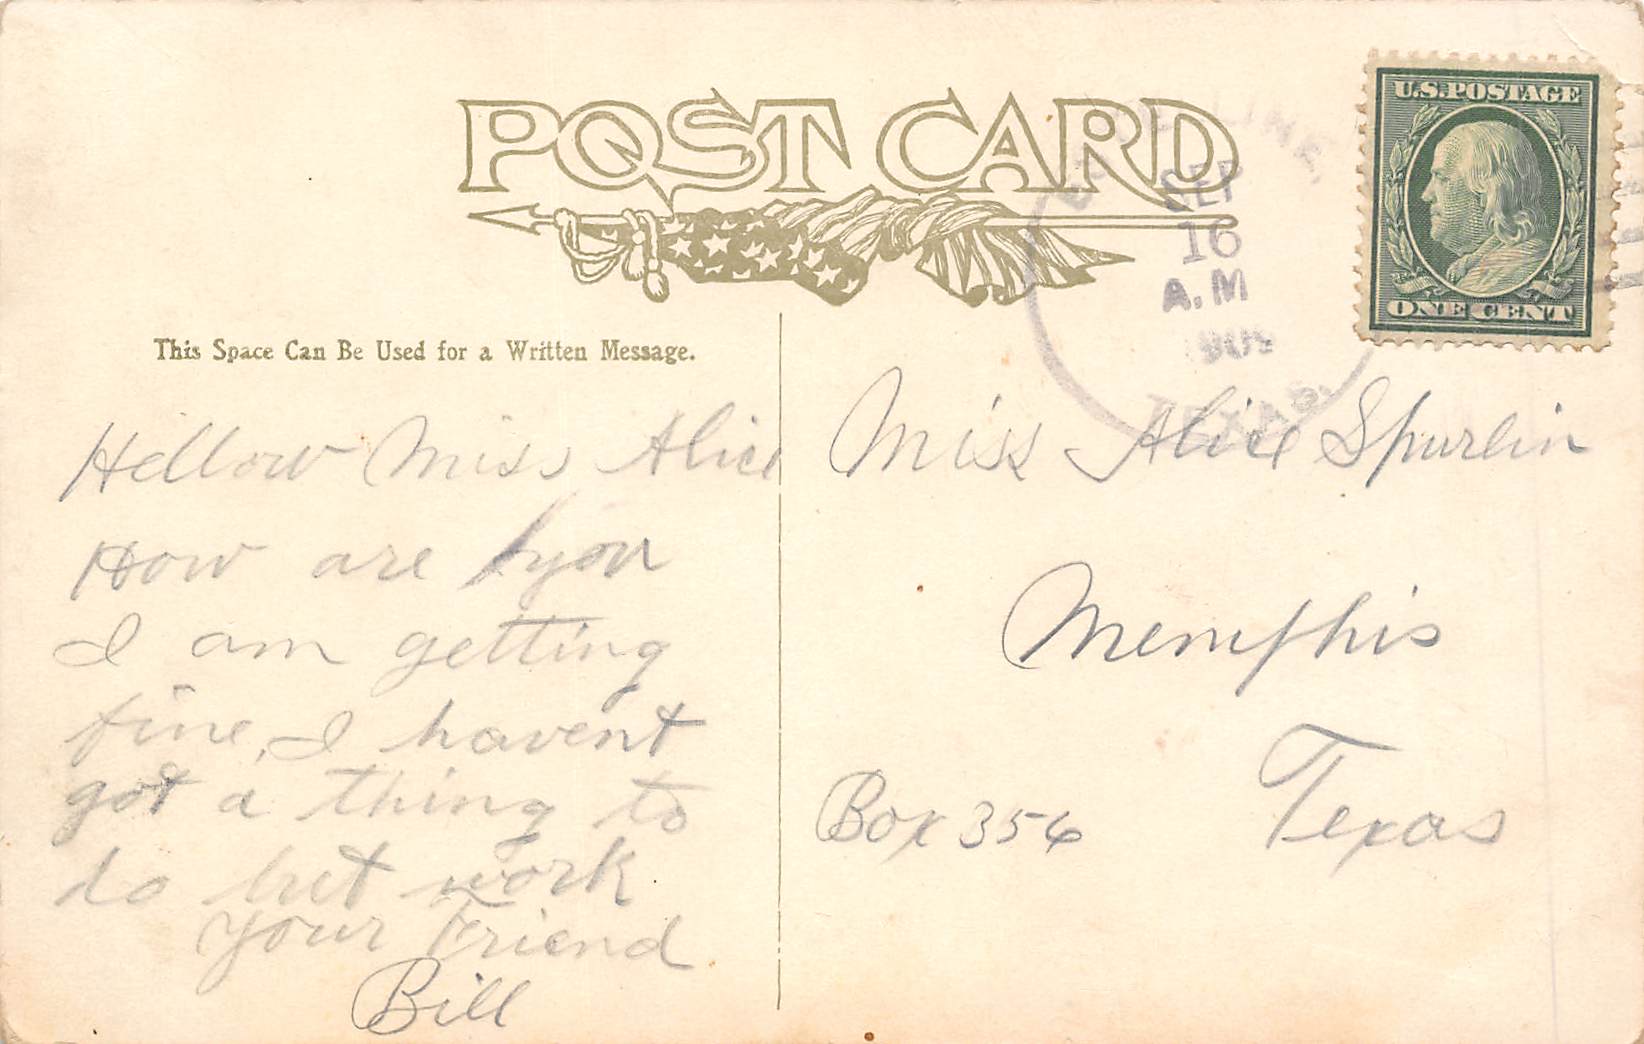 POST CARD
U.S. POSTAGE
ONE CENT
SEP
16
A.M
1909
TEXAS.
This Space Can Be Used for a Written Message.
Hellow Miss Alice
How are you
I am getting
fine, I havent
got a thing to
do but work
your Friend
Bill
Miss Alice Spurlin
Memphis
Texas
Box 356